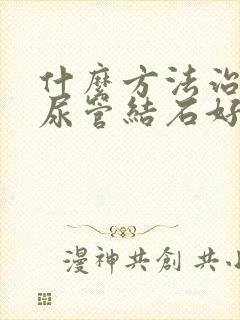 什麼方法治
尿管結石好
漫神共創 共小